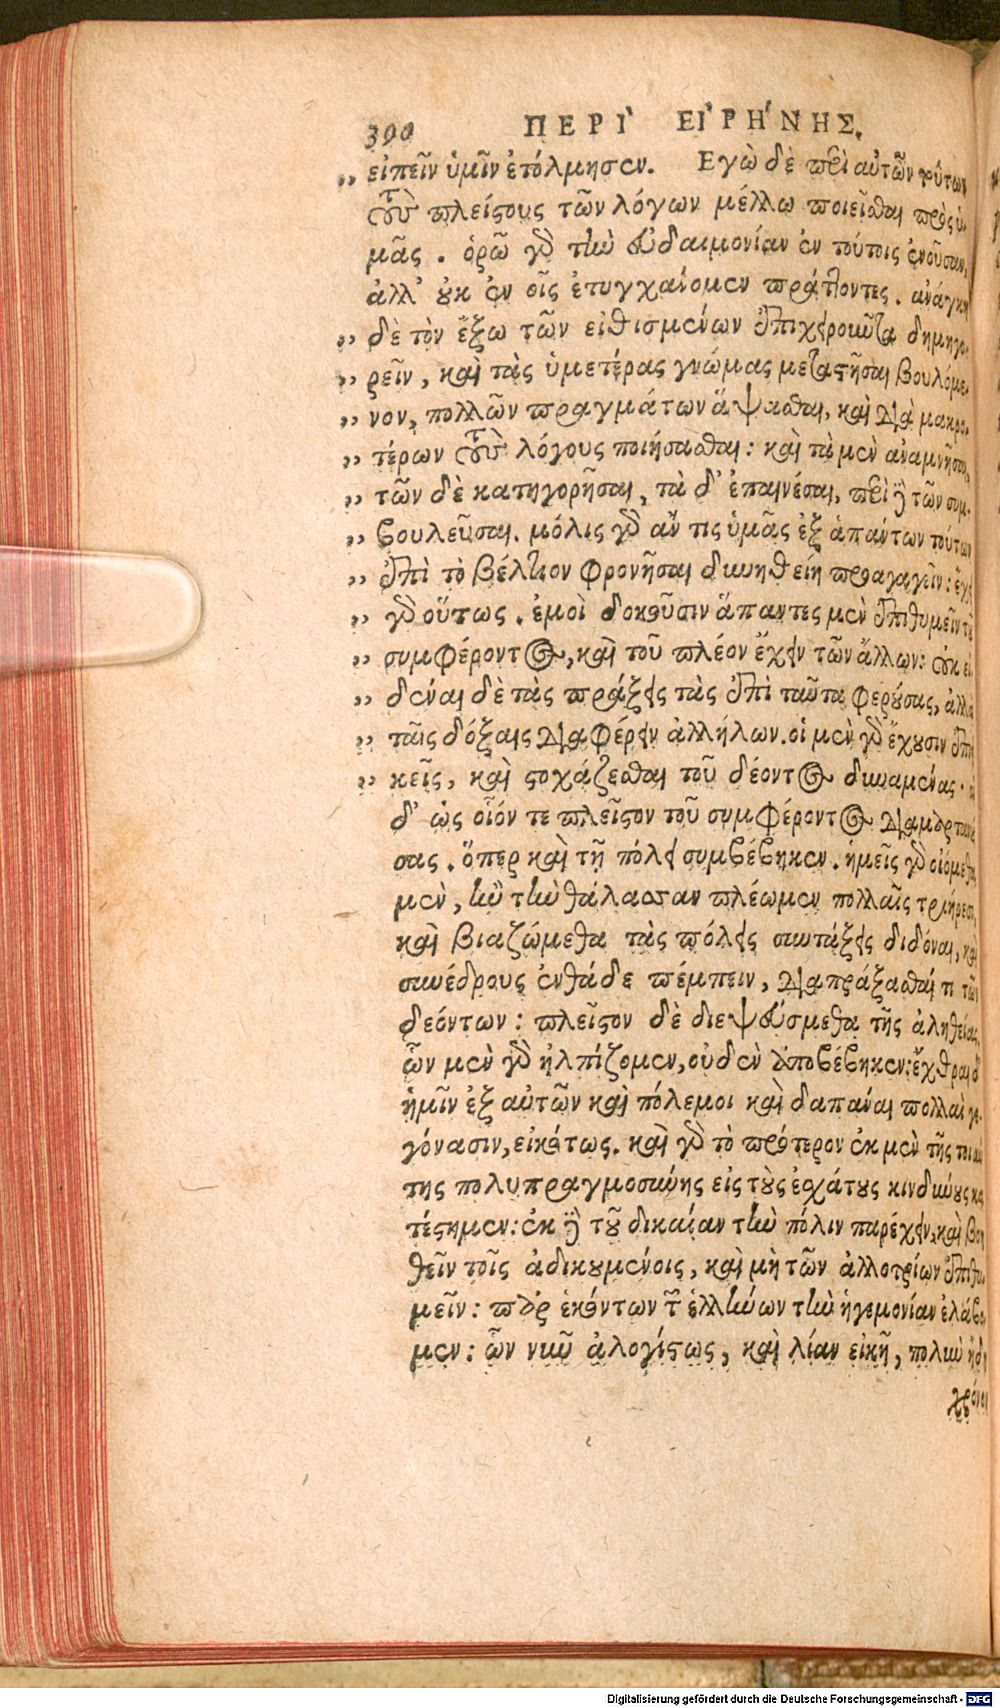 390 ΠΕΡΙ` ΕΙ᾿ΡΗ´ΝΗΣ.
„ εἰπεῖν ὑμῖν ἐτόλμησεν. Εγὼ δὲ περὶ αὐτῶν τούτων
τοὺς πλείστους τῶν λόγων μέλλω ποιεῖσθαι πρὸς ὑ-
μᾶς. ὁρῶ γὰρ τὴν εὐδαιμονίαν ἐν τούτοις ἐνοῦσαν,
ἀλλ' οὐκ ἐν οἷς ἐτυγχάνομεν πράττοντες. ἀνάγκη
„ δὲ τὸν ἔξω τῶν εἰθισμένων ἐπιχειροῦντα δημηγο-
„ ρεῖν, καὶ τὰς ὑμετέρας γνώμας μεταστῆσαι βουλόμε-
„ νον, πολλῶν πραγμάτων ἅψασθαι, καὶ διὰ μακρο-
„ τέρων τοὺς λόγους ποιήσασθαι: καὶ τὰ μὲν ἀναμνῆσαι,
„ τῶν δὲ κατηγορῆσαι, τὰ δ' ἐπαινέσαι, περὶ δὲ τῶν συμ-
„ βουλεῦσαι. μόλις γὰρ ἄν τις ὑμᾶς ἐξ ἁπάντων τούτων
„ ἐπὶ τὸ βέλτιον φρονῆσαι δυνηθείη προαγαγεῖν: ἔχει
„ γὰρ οὕτως. ἐμοὶ δοκοῦσιν ἅπαντες μὲν ἐπιθυμεῖν τοῦ
„ συμφέροντος, καὶ τοῦ πλέον ἔχειν τῶν ἄλλων: οὐκ εἰ-
„ δέναι δὲ τὰς πράξεις τὰς ἐπὶ ταῦτα φερούσας, ἀλλὰ
„ ταῖς δόξαις διαφέρειν ἀλλήλων. οἱ μὲν γὰρ ἔχουσιν ἐπιει-
„ κεῖς, καὶ στοχάζεσθαι τοῦ δέοντος δυναμένας.
δ' ὡς οἷόν τε πλεῖστον τοῦ συμφέροντος διαμαρτανού-
σας. ὅπερ καὶ τῇ πόλει συμβέβηκεν. ἡμεῖς γὰρ οἰόμεθα
μὲν, ἢν τὴν θάλασσαν πλέωμεν πολλαῖς τριήρεσι,
καὶ βιαζώμεθα τὰς πόλεις συντάξεις διδόναι, καὶ
συνέδρους ἐνθάδε πέμπειν, διαπράξασθαί τι τῶν
δεόντων: πλεῖστον δὲ διεψεύσμεθα τῆς ἀληθείας.
ὧν μὲν γὰρ ἠλπίζομεν, οὐδὲν ἀποβέβηκεν: ἔχθραι δ'
ἡμῖν ἐξ αὐτῶν καὶ πόλεμοι καὶ δαπάναι πολλαὶ γε-
γόνασιν, εἰκότως. καὶ γὰρ τὸ πρότερον ἐκ μὲν τῆς τοιαύ-
της πολυπραγμοσύνης εἰς τοὺς ἐσχάτους κινδύνους κα-
τέστημεν: ἐκ δὲ τοῦ δικαίαν τὴν πόλιν παρέχειν, καὶ βοη-
θεῖν τοῖς ἀδικουμένοις, καὶ μὴ τῶν ἀλλοτρίων ἐπιθυ-
μεῖν: παρ' ἑκόντων τῶν ἑλλήνων τὴν ἡγεμονίαν ἐλάβο-
μεν: ὧν νῦν ἀλογίστως, καὶ λίαν εἰκῆ, πολὺν ἤδη
χρόνον
Digitalisierung gefördert durch die Deutsche Forschungsgemeinschaft - DFG